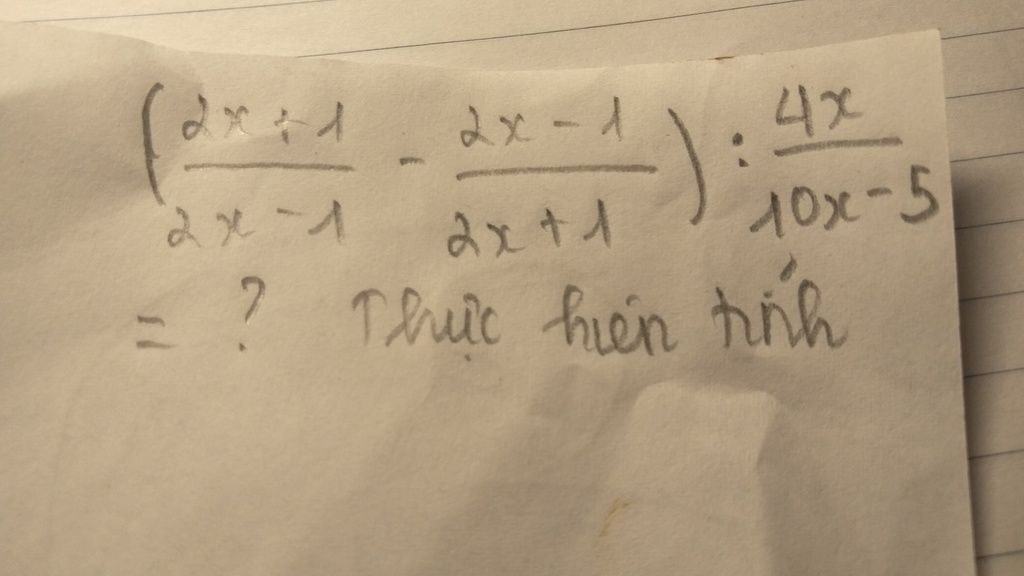 ( 2x + 1 / 2x - 1 - 2x - 1 / 2x + 1 ) : 4x / 10x - 5
= ? Thực hiên tính